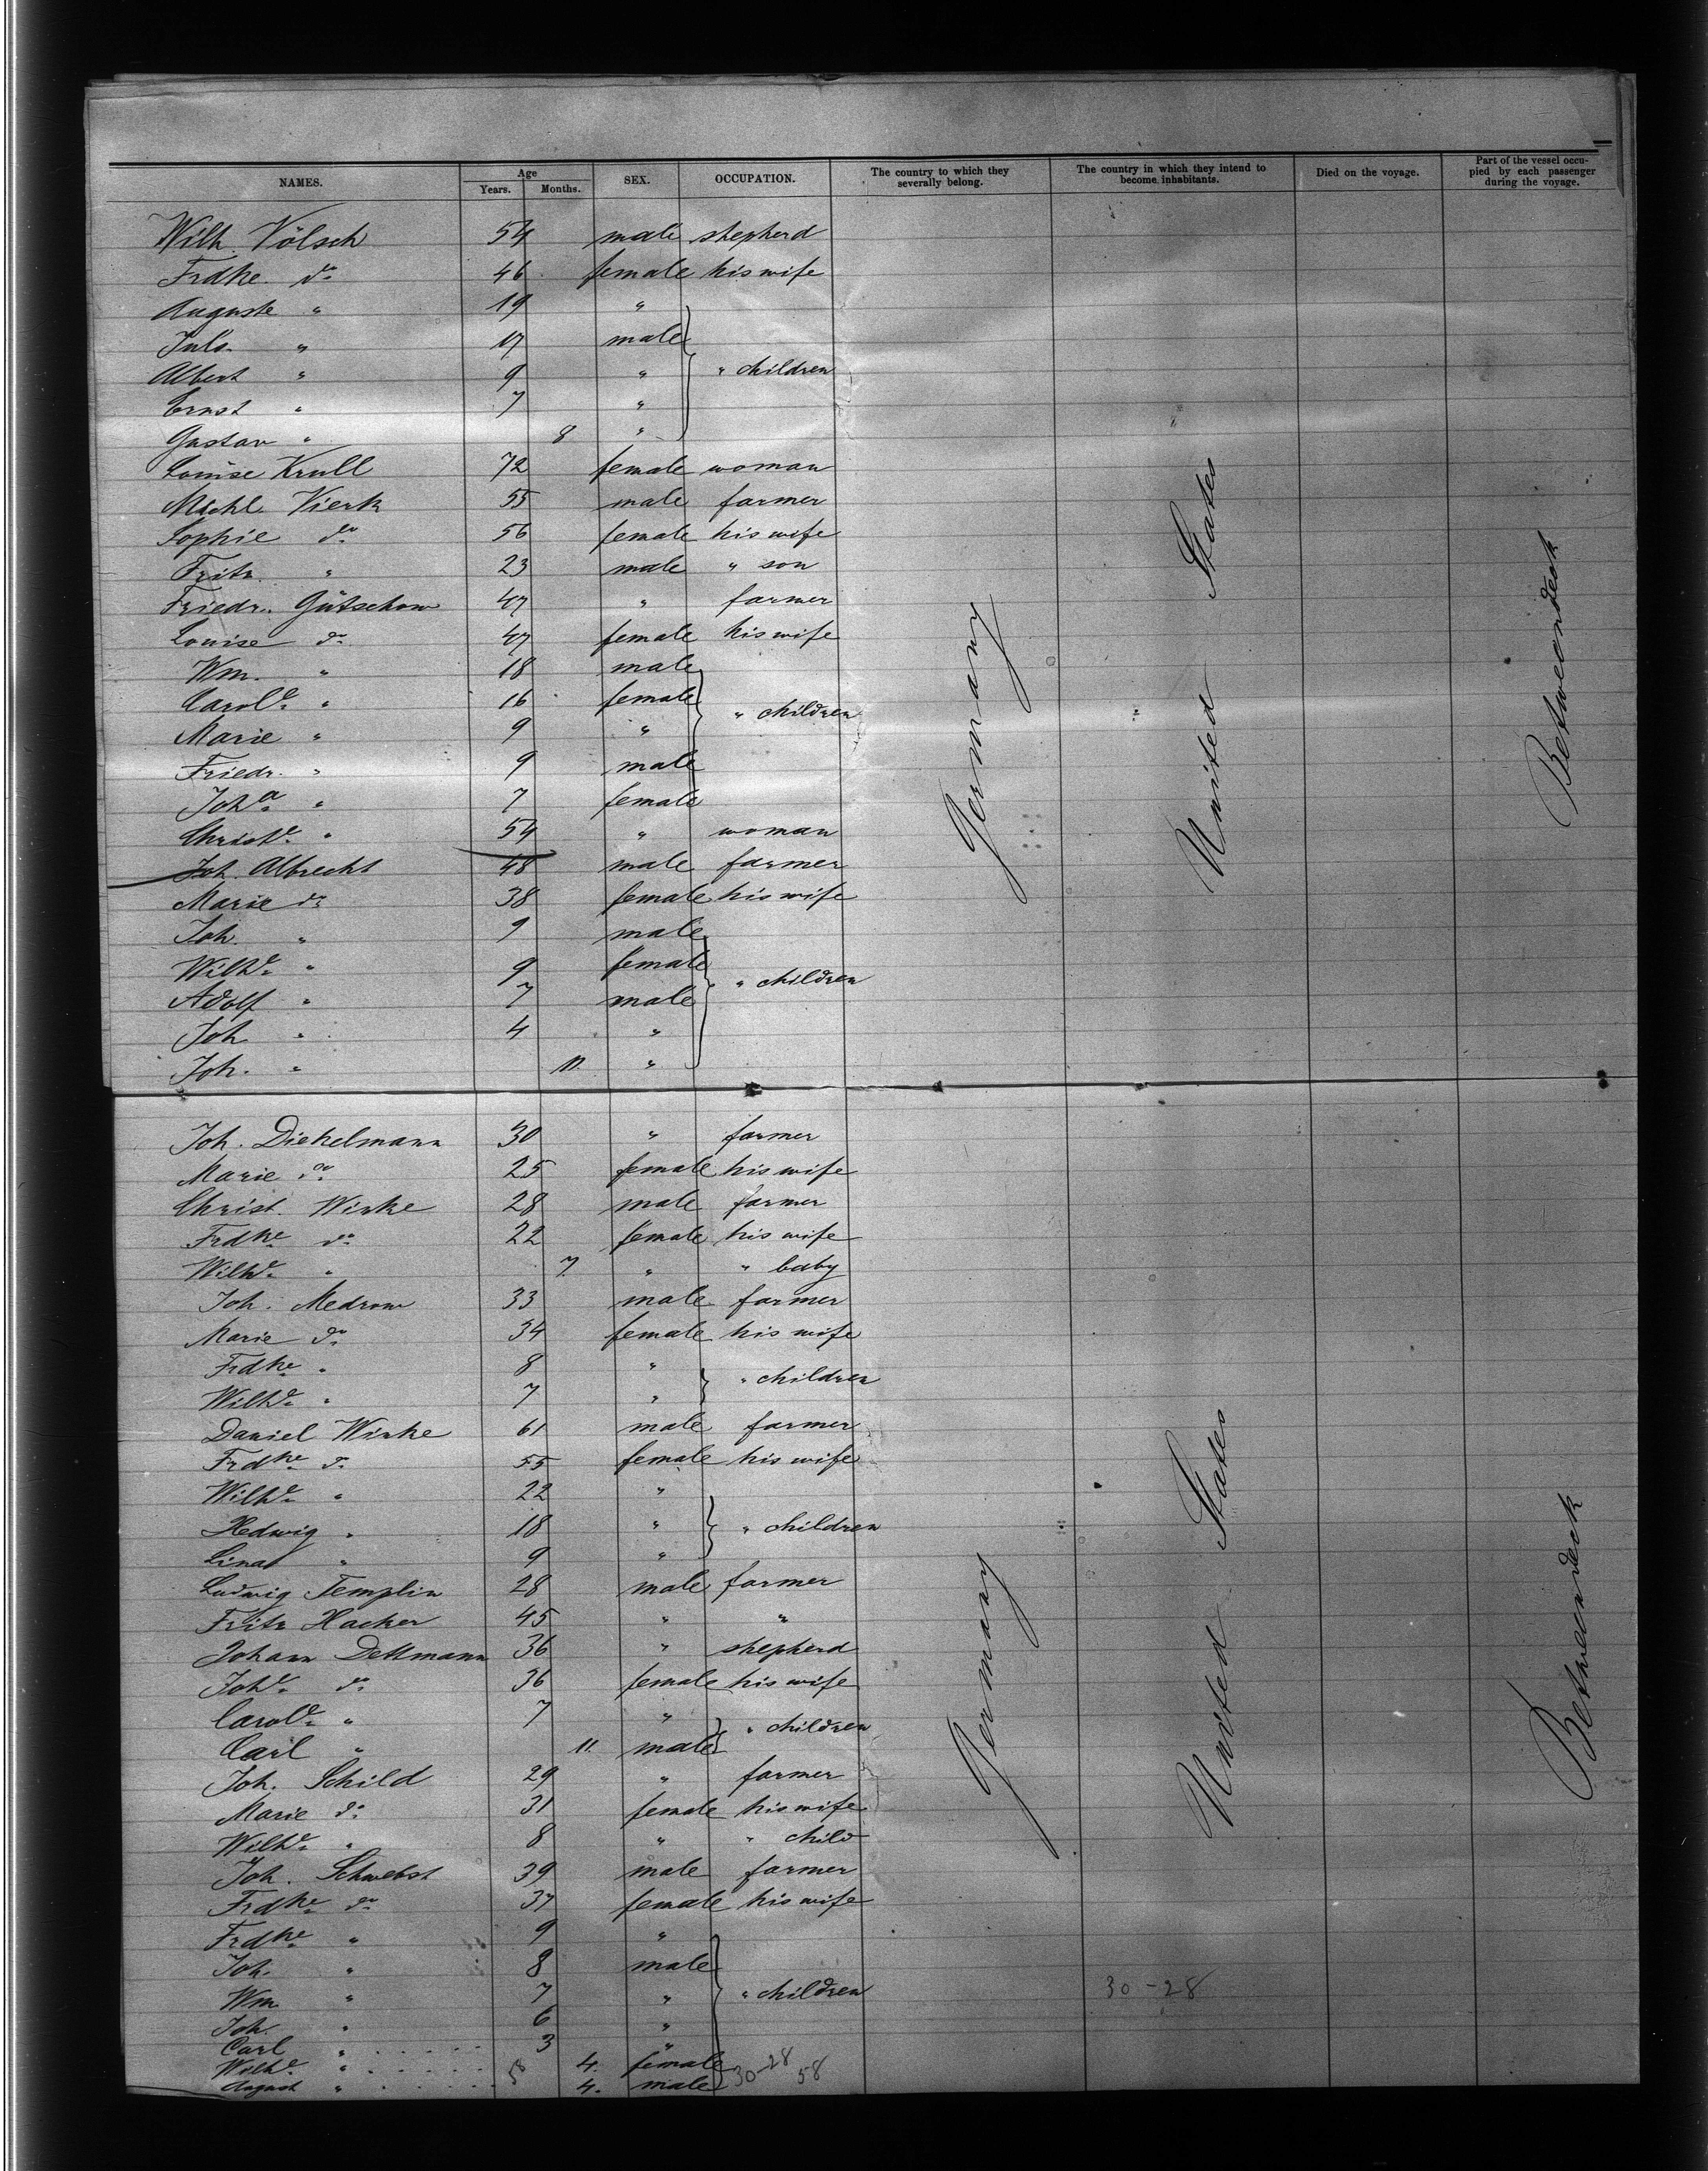 NAMES. Age Years. Months. SEX. OCCUPATION. The country to which they severally belong. The country in which they intend to become inhabitants. Died on the voyage. Part of the vessel occupied by each passenger during the voyage.
Wilh. Völsch 54 male shepherd
Frdke. do 46 female his wife
Auguste " 19 "
Juls. " 17 male
Albert " 9 " " children
Ernst " 7 "
Gustav " 8 "
Louise Krull 72 female woman
Michl. Vierk 55 male farmer
Sophie do 56 female his wife
Fritz " 23 male " son
Friedr. Gütschow 47 " farmer
Louise do 47 female his wife
Wm. " 18 male
Carole. " 16 female " children
Marie " 9 "
Friedr. " 9 male
Joha. " 7 female
Christe. " 54 " woman
Joh. Albrecht 48 male farmer
Marie do 38 female his wife
Joh. " 9 male
Wilhe. " 9 female " children
Adolf " 7 male
Joh " 4 "
Joh. " 11. "
Germany
United States
Betweendeck
Joh. Diekelmann 30 " farmer
Marie do 25 female his wife
Christ. Wirke 28 male farmer
Frdke. do 22 female his wife
Wilhe. " 7. " " baby
Joh. Medrow 33 male farmer
Marie do 34 female his wife
Frdke. " 8 " " children
Wilhe. " 7 "
Daniel Wirke 61 male farmer
Frdke. do 55 female his wife
Wilhe. " 22 "
Hedwig " 18 " " children
Lina " 9 "
Ludwig Templin 28 male farmer
Fritz Hacker 45 " "
Johann Dettmann 36 " shepherd
Johe. do 36 female his wife
Carole. " 7 " " children
Carl " 11. male
Joh. Schild 29 " farmer
Marie do 31 female his wife
Wilhe. " 8 " " child
Joh. Schwebst 39 male farmer
Frdke. do 37 female his wife
Frdke. " 9 "
Joh. " 8 male
Wm " 7 " " children
Joh. " 6 "
Carl " 3 "
Wilhe. " 4. female
August " 4. male
58 30-28 58
30-28
Germany
United States
Betweendeck